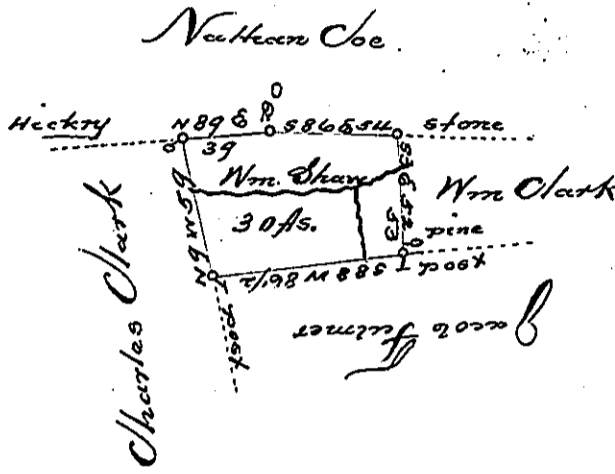 Nathan Coe
Hickry
N 89 E
39
R O
S 86 E 54
stone
Wm. Shaw
30 As.
Wm Clark
pine
post
N 6 W 59
S 88 W 86 1/2
post
Charles Clark
Jacob Fulmer